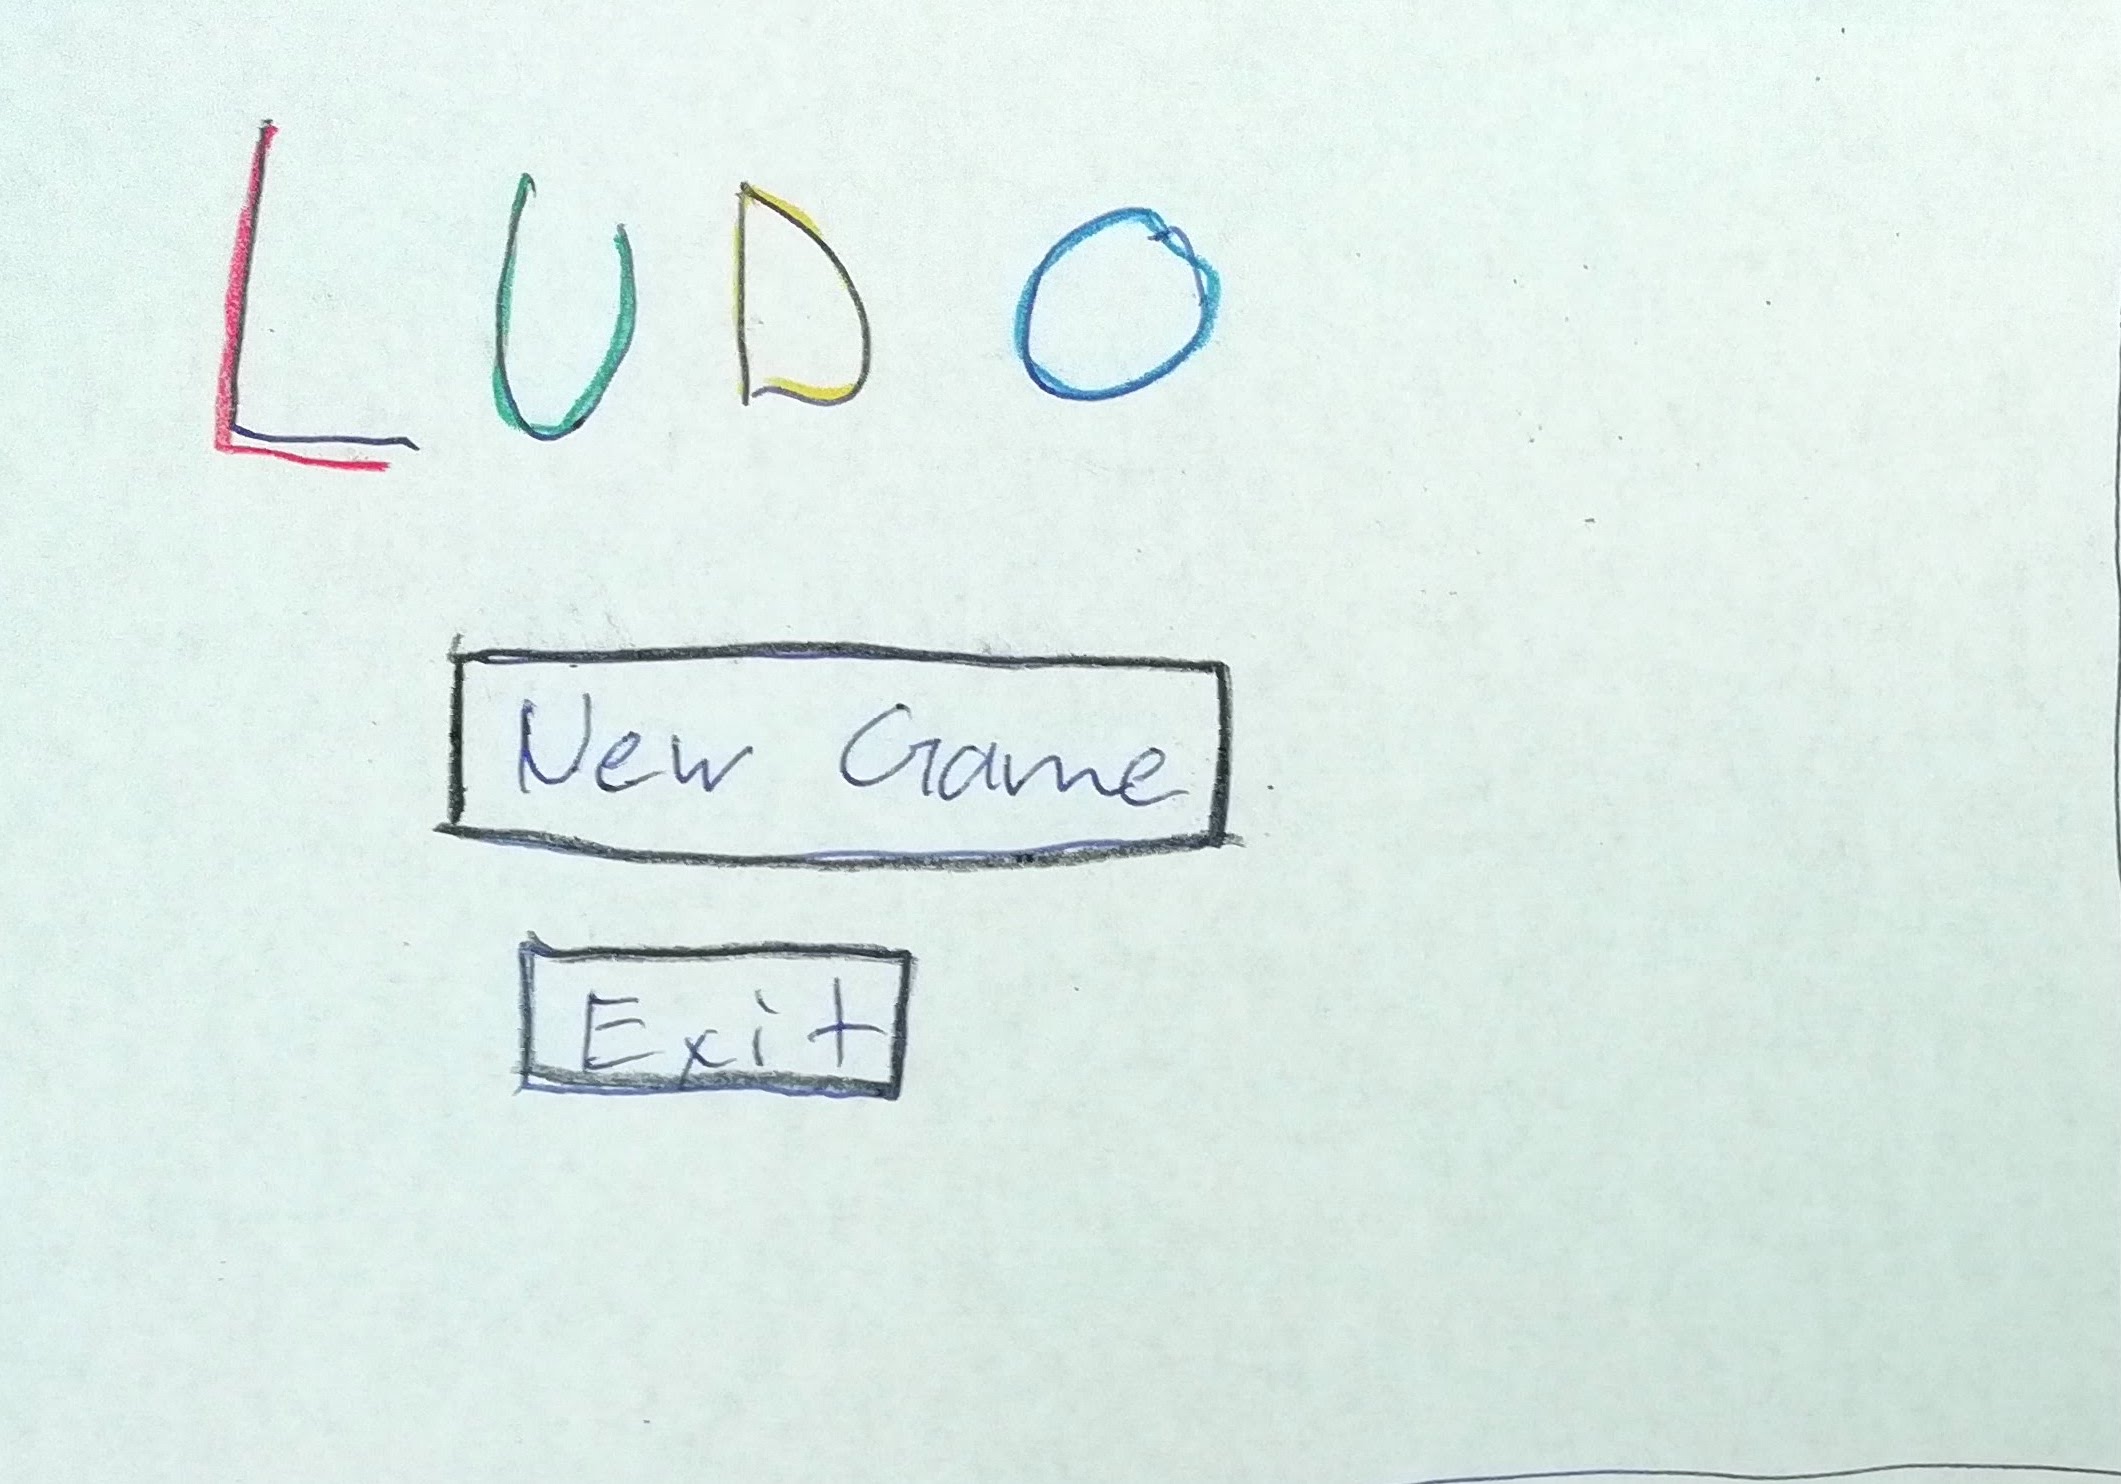 LUDO
New Game
Exit